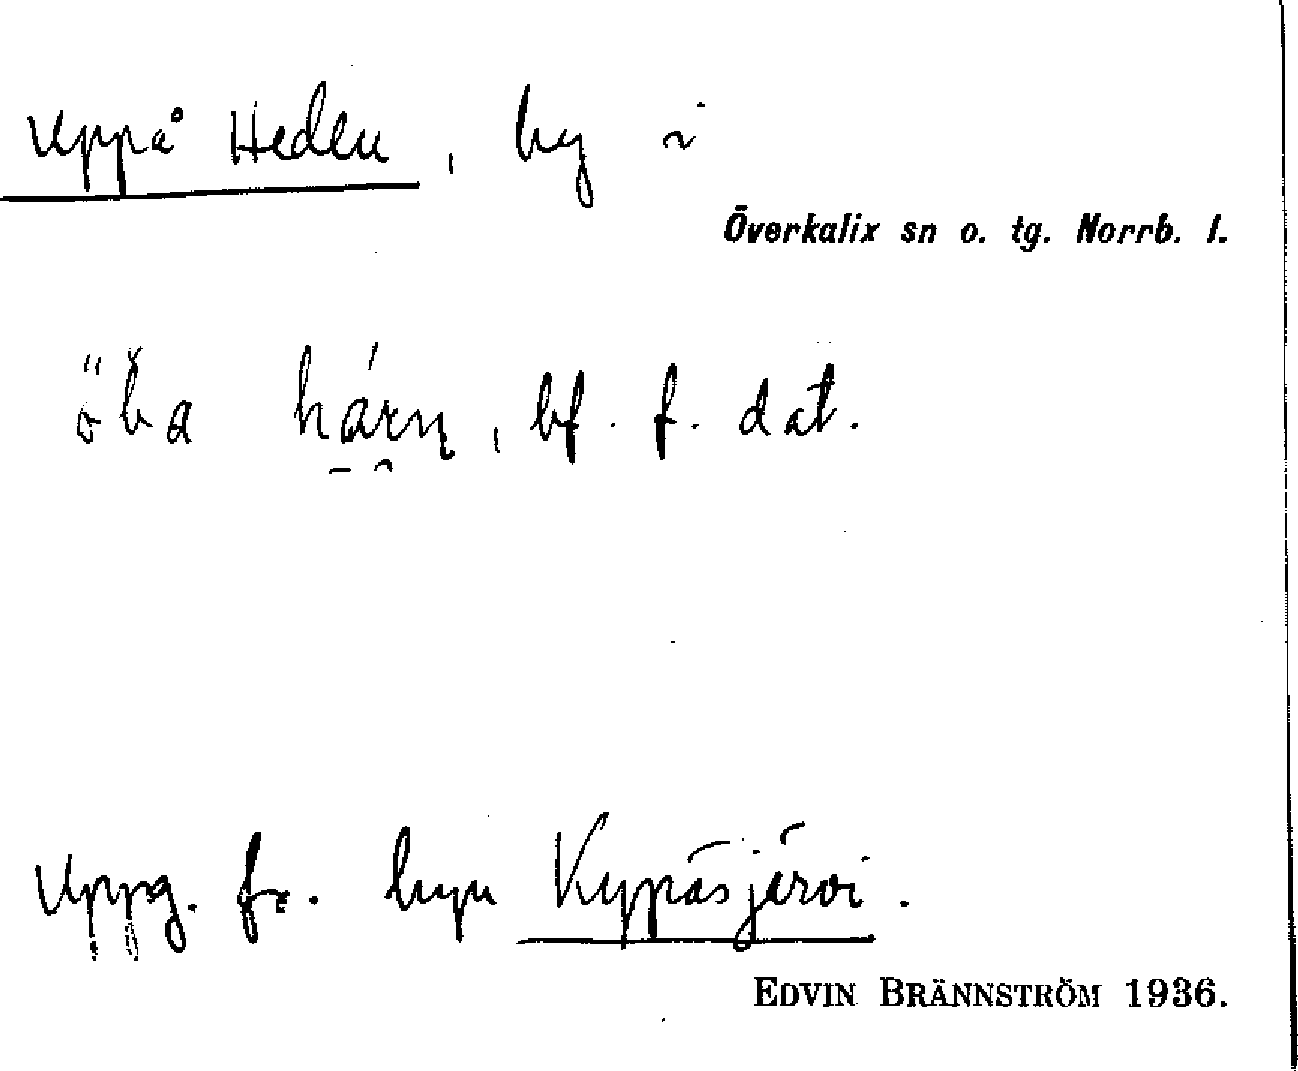 Uppå Heden, by i
Överkalix sn o. tg. Norrb. l.
öba hárn, bf. f. dat.
Uppg. fr. byn Kypäsjärvi.
EDVIN BRÄNNSTRÖM 1936.